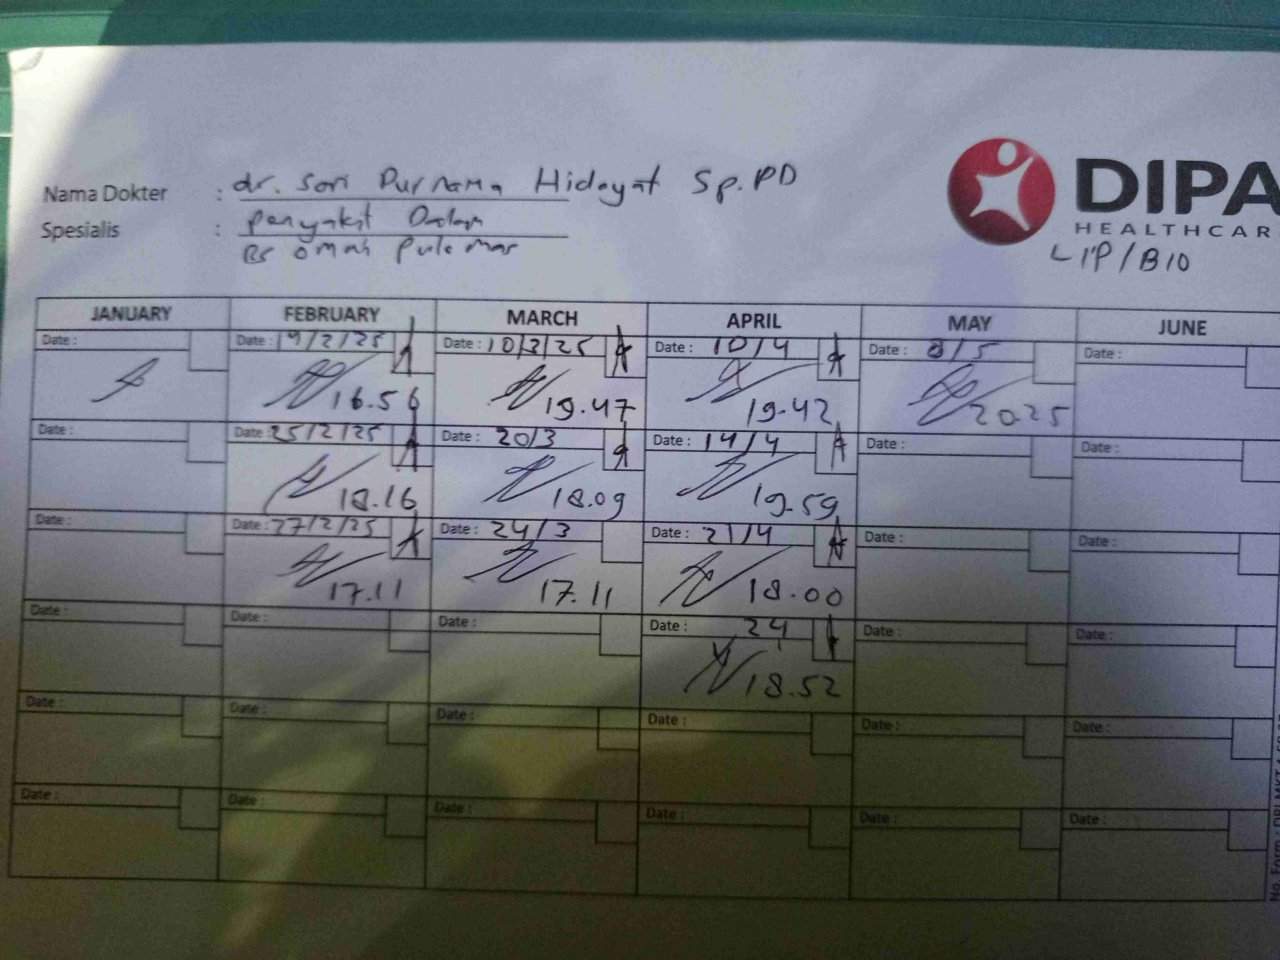 Nama Dokter : dr. Purnama Hidayat Sp.PD
Spesialis : Penyakit Dalam
RS omah
DIPA
HEALTHCAR
LIP/B10
JANUARY FEBRUARY MARCH APRIL MAY JUNE
Date : Date : 19/2/25 Date : 10/3/25 Date : 10/4 Date : 8/5 Date :
16.56 19.47 19.42 20.25
Date : Date : 25/2/25 Date : 20/3 Date : 14/4 Date : Date :
18.16 18.09 19.59
Date : Date : 27/2/25 Date : 24/3 Date : 21/4 Date : Date :
17.11 17.11 18.00
Date : Date : Date : Date : 24 Date : Date :
18.52
Date : Date : Date : Date : Date : Date :
Date : Date : Date : Date : Date : Date :
No. Form